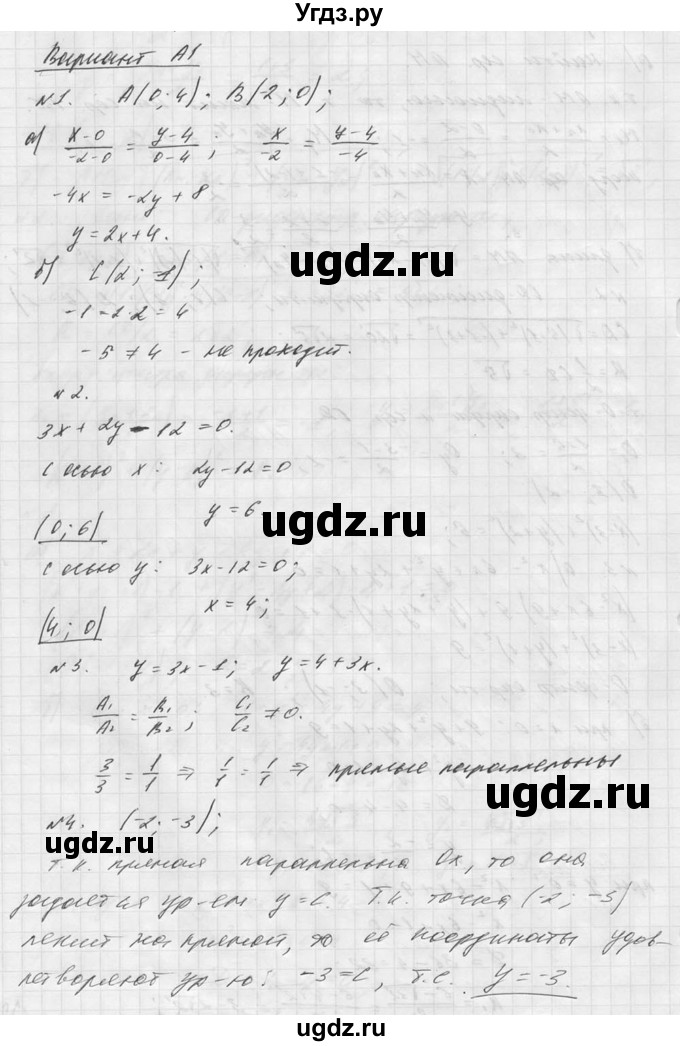 Угдз.ру
Вариант А1
№1. А(0;4); В(-2;0);
а) (x-0)/(-2-0) = (y-4)/(0-4); x/(-2) = (y-4)/(-4)
-4x = -2y+8
y=2x+4.
б) С(2;-1);
-1-2·2=4
-5≠4 - не проходит.
№2.
3x+2y-12=0.
С осью x: 2y-12=0
y=6
(0;6)
С осью y: 3x-12=0;
x=4;
(4;0)
№3. y=3x-1; y=4+3x.
A₁/A₂ = B₁/B₂; C₁/C₂ ≠0.
3/3 = 1/1 ⇒ 1/1 = 1/1 ⇒ прямые параллельны
№4. (-2;-3);
т.к. прямая параллельна Ox, то она
задается ур-ем y=C. Т.к. точка (-2;-3)
лежит на прямой, то её координаты удов-
летворяют ур-ю: -3=C, т.е. y=-3.
ugdz.ru
ugdz.ru
ugdz.ru
ugdz.ru
ugdz.ru
ugdz.ru
ugdz.ru